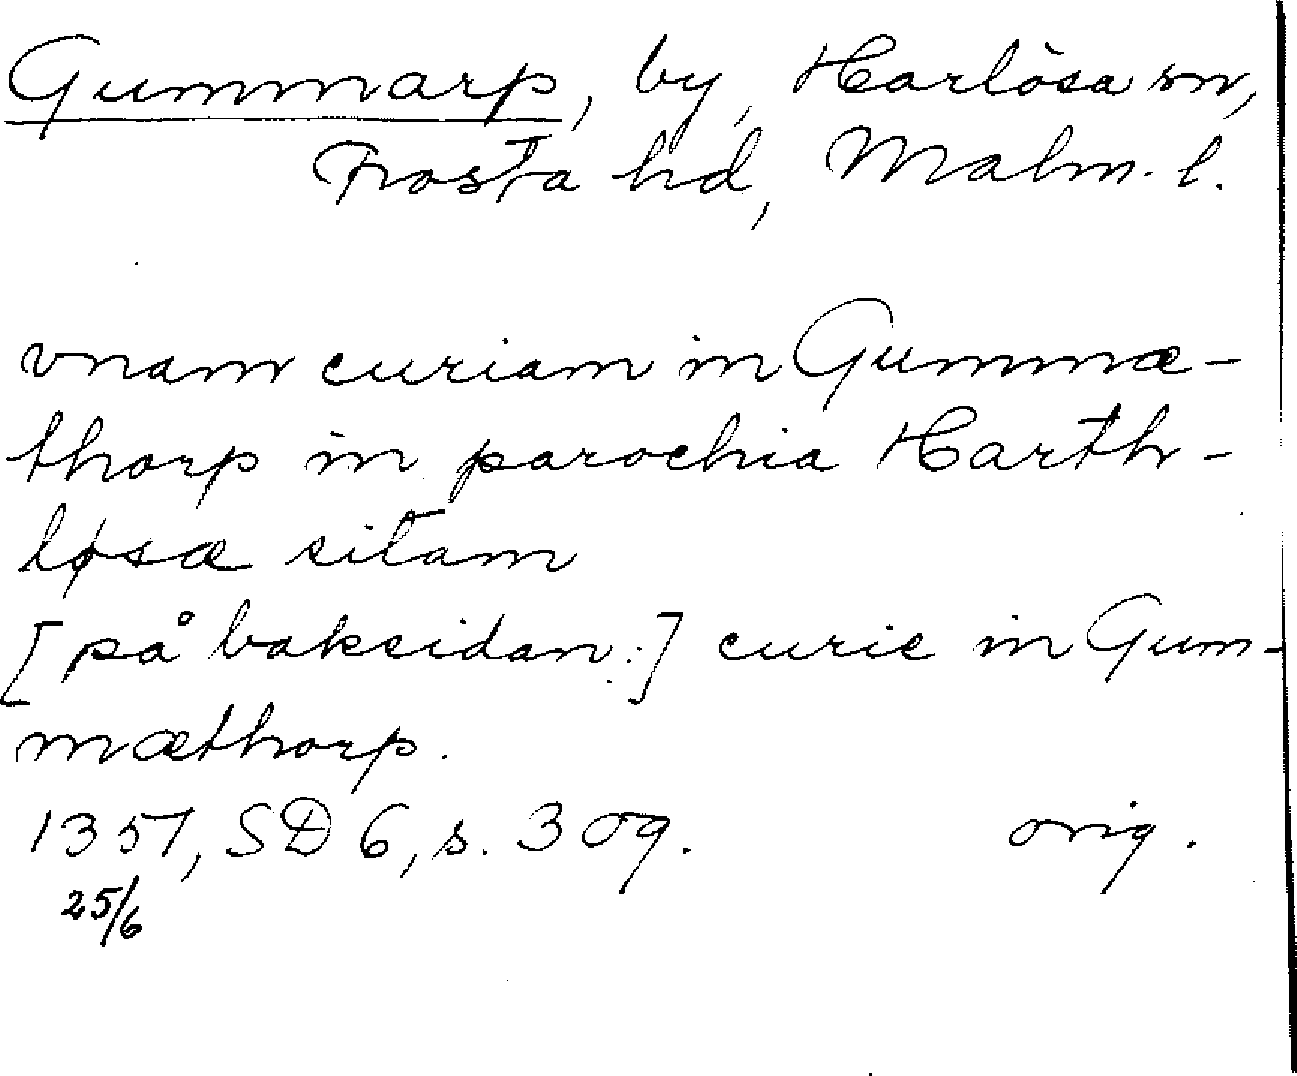 Gummarp, by, Harlösa sn,
Frosta hd, Malm. l.
vnam curiam in Gummæ-
thorp in parochia Harth-
løsæ sitam
[på baksidan:] curie in Gum-
mæthorp.
1357, SD 6, s. 309. orig.
25/6